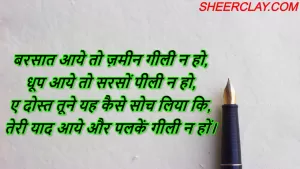 SHEERCLAY.COM
बरसात आये तो ज़मीन गीली न हो,
धूप आये तो सरसों पीली न हो,
ए दोस्त तूने यह कैसे सोच लिया कि,
तेरी याद आये और पलकें गीली न हों।